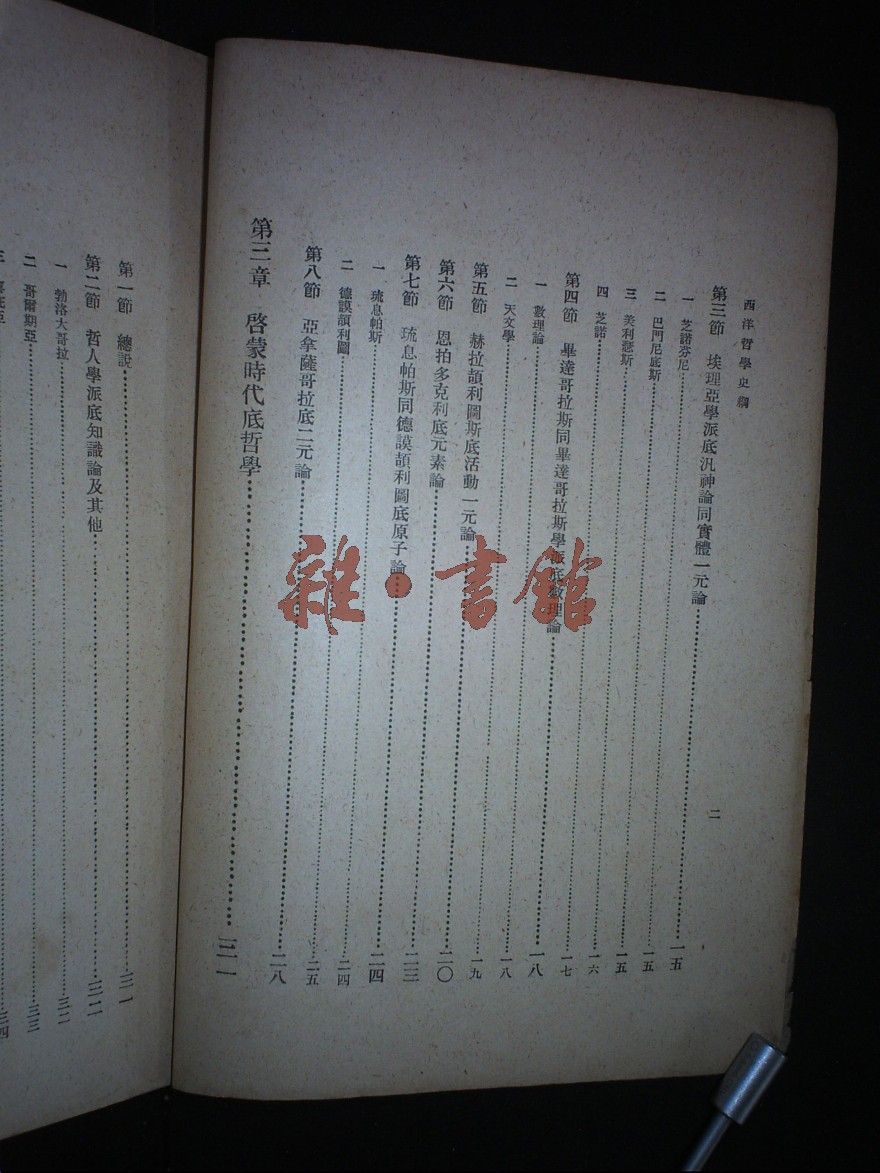 西洋哲學史綱
二
第三節 埃理亞學派底汎神論同實體一元論 一五
一 芝諾芬尼 一五
二 巴門尼底斯 一五
三 美利瑟斯 一六
四 芝諾 一七
第四節 畢達哥拉斯同畢達哥拉斯學派底數理論 一八
一 數理論 一八
二 天文學 一九
第五節 赫拉頡利圖斯底活動一元論 二〇
第六節 恩拍多克利底元素論 二三
第七節 琉息帕斯同德謨頡利圖底原子論 二四
一 琉息帕斯 二四
二 德謨頡利圖 二五
第八節 亞拿薩哥拉底二元論 二八
第三章 啓蒙時代底哲學 三一
第一節 總說 三一
第二節 哲人學派底知識論及其他 三二
一 勃洛大哥拉 三二
二 哥爾期亞 三三
三 三四
雜·書館